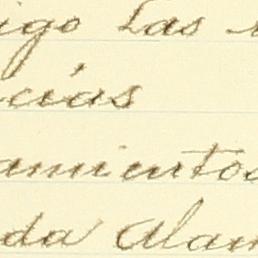 igo las
cias
amientos
da Alam